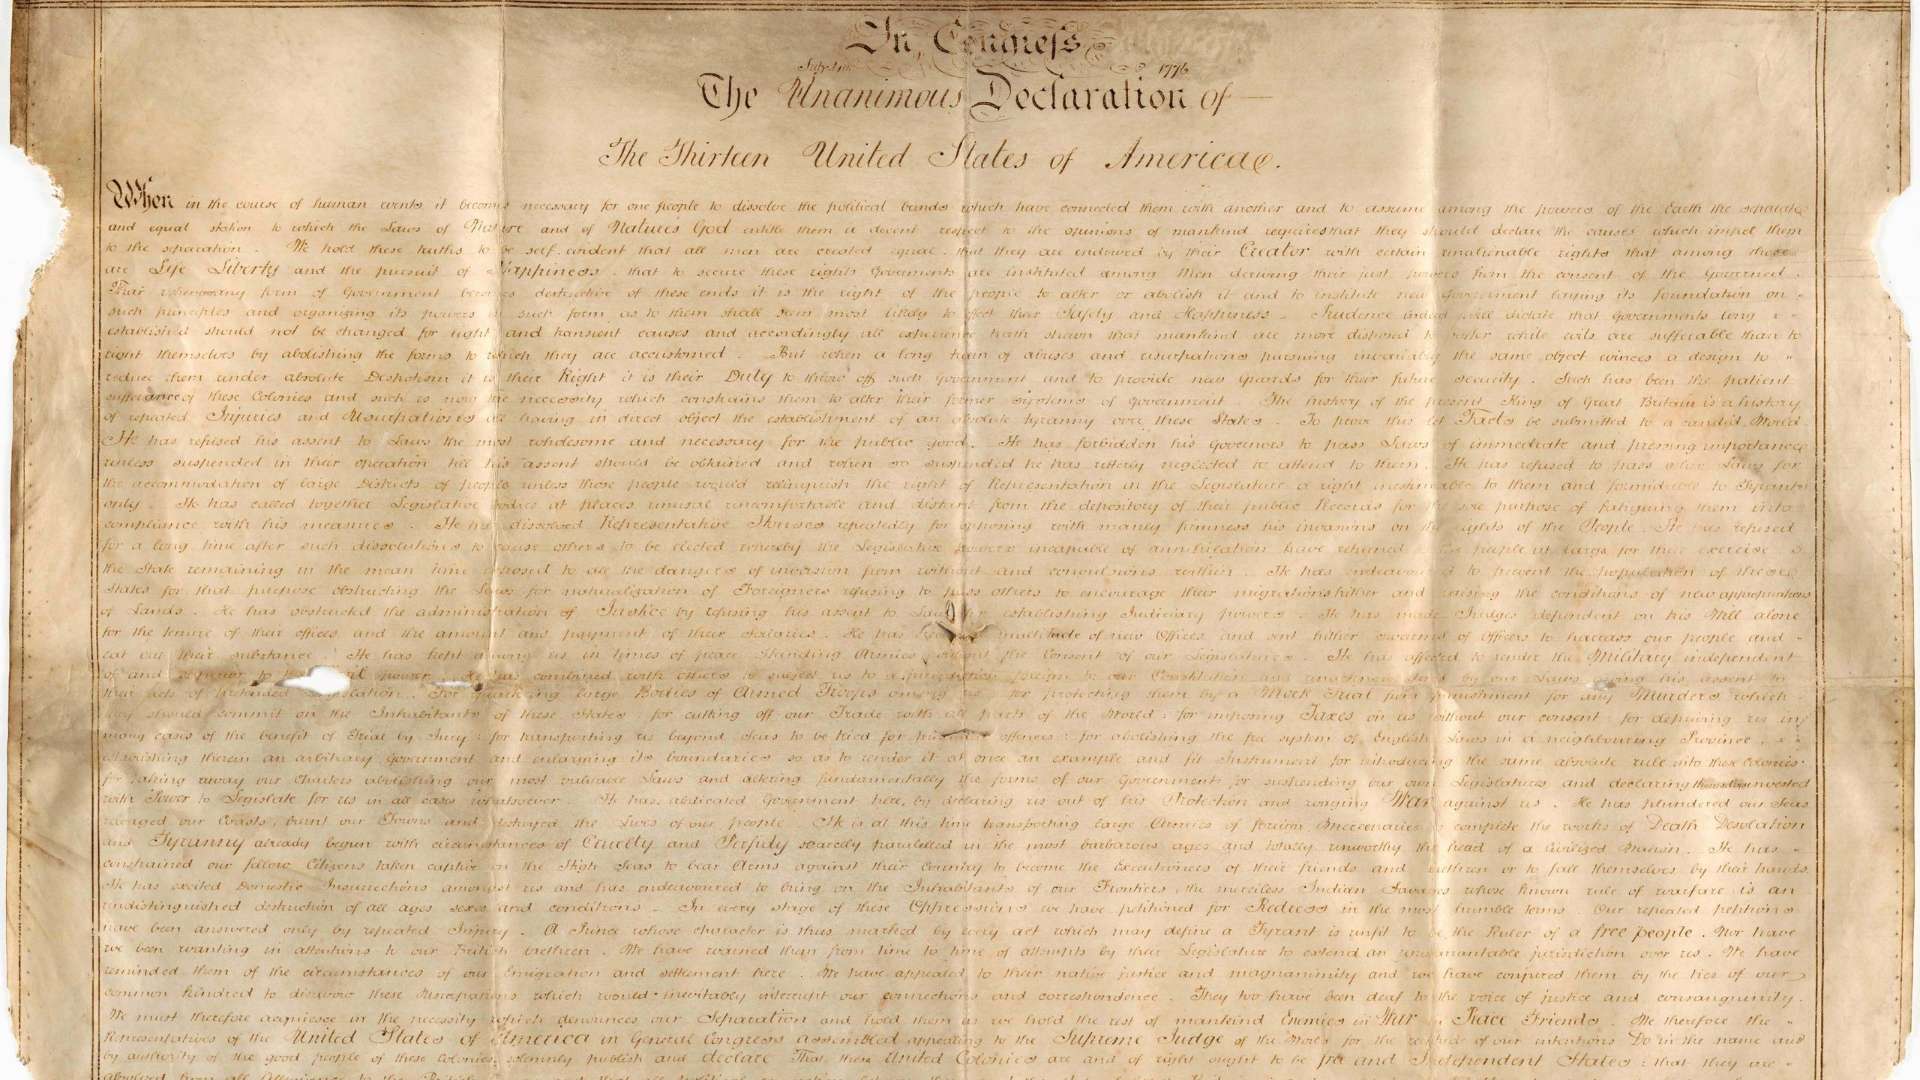 In Congress
July 4th 1776
The Unanimous Declaration of
The Thirteen United States of America.
When in the course of human events it becomes necessary for one people to dissolve the political bands which have connected them with another and to assume among the powers of the Earth the separate
and equal station to which the Laws of Nature and of Natures God entitle them a decent respect to the opinions of mankind requires that they should declare the causes which impel them
to the separation. We hold these truths to be self evident that all men are created equal. that they are endowed by their Creator with certain unalienable rights that among these
are Life Liberty and the pursuit of Happiness. that to secure these rights Governments are instituted among Men deriving their just powers from the consent of the Governed.
That whenever any form of Government becomes destructive of these ends it is the right of the people to alter or abolish it and to institute new Government laying its foundation on
such principles and organizing its powers in such form as to them shall seem most likely to effect their Safety and Happiness. Prudence indeed will dictate that Governments long
established should not be changed for light and transient causes and accordingly all experience hath shewn that mankind are more disposed to suffer while evils are sufferable than to
right themselves by abolishing the forms to which they are accustomed. But when a long train of abuses and usurpations pursuing invariably the same object evinces a design to
reduce them under absolute Despotism it is their Right it is their Duty to throw off such Government and to provide new Guards for their future security. Such has been the patient
sufferance of these Colonies and such is now the necessity which constrains them to alter their former Systems of Government. The history of the present King of Great Britain is a history
of repeated Injuries and Usurpations all having in direct object the establishment of an absolute tyranny over these States. To prove this let Facts be submitted to a candid World.
He has refused his assent to Laws the most wholesome and necessary for the public good. He has forbidden his Governors to pass Laws of immediate and pressing importance
unless suspended in their operation till his assent should be obtained and when so suspended he has utterly neglected to attend to them. He has refused to pass other Laws for
the accommodation of large Districts of people unless those people would relinquish the right of Representation in the Legislature a right inestimable to them and formidable to Tyrants
only. He has called together Legislative bodies at places unusual uncomfortable and distant from the depository of their public Records for the sole purpose of fatiguing them into
compliance with his measures. He has dissolved Representative Houses repeatedly for opposing with manly firmness his invasions on the rights of the People. He has refused
for a long time after such dissolutions to cause others to be elected whereby the Legislative powers incapable of annihilation have returned to the people at large for their exercise
the State remaining in the mean time exposed to all the dangers of invasion from without and convulsions within. He has endeavoured to prevent the population of these
States for that purpose obstructing the Laws for naturalization of Foreigners refusing to pass others to encourage their migrations hither and raising the conditions of new appropriations
of Lands. He has obstructed the administration of Justice by refusing his assent to Laws for establishing Judiciary powers. He has made Judges dependent on his Will alone
for the tenure of their offices and the amount and payment of their Salaries. He has multitude of new Offices and sent hither swarms of officers to harrass our people and
eat out their substance. He has kept among us in times of peace Standing Armies without the Consent of our Legislatures. He has affected to render the Military independent
of and superior to the power. He has combined with others to subject us to a jurisdiction foreign to our Constitution and unacknowledged by our Laws giving his assent to
their acts of pretended Legislation. For quartering large Bodies of Armed Troops among us: for protecting them by a Mock Trial from punishment for any Murders which
they should commit on the Inhabitants of these States: for cutting off our Trade with all parts of the World: for imposing Taxes on us without our consent: for depriving us in
many cases of the benefit of Trial by Jury: for transporting us beyond Seas to be tried for pretended offences: for abolishing the free system of English Laws in a neighbouring Province
establishing therein an arbitrary Government and enlarging its boundaries so as to render it at once an example and fit Instrument for introducing the same absolute rule into these Colonies
for taking away our Charters abolishing our most valuable Laws and altering fundamentally the forms of our Governments for suspending our own Legislatures and declaring themselves invested
with Power to Legislate for us in all cases whatsoever. He has abdicated Government here, by declaring us out of his Protection and waging War against us. He has plundered our Seas
ravaged our Coasts, burnt our Towns and destroyed the Lives of our people. He is at this time transporting large Armies of foreign Mercenaries to complete the works of Death Desolation
and Tyranny already begun with circumstances of Cruelty and Perfidy scarcely paralleled in the most barbarous ages and totally unworthy the head of a Civilized Nation. He has
constrained our fellow Citizens taken captive on the High Seas to bear Arms against their Country to become the Executioners of their friends and brethren or to fall themselves by their hands.
He has excited Domestic Insurrections amongst us and has endeavoured to bring on the Inhabitants of our Frontiers, the merciless Indian Savages whose known rule of warfare is an
undistinguished destruction of all ages sexes and conditions. In every stage of these Oppressions we have petitioned for Redress in the most humble terms. Our repeated petitions
have been answered only by repeated Injury. A Prince whose character is thus marked by every act which may define a Tyrant is unfit to be the Ruler of a free people. Nor have
we been wanting in attentions to our British brethren. We have warned them from time to time of attempts by their Legislature to extend an unwarrantable jurisdiction over us. We have
reminded them of the circumstances of our Emigration and settlement here. We have appealed to their native justice and magnanimity and we have conjured them by the ties of our
common kindred to disavow these Usurpations which would inevitably interrupt our connections and correspondence. They too have been deaf to the voice of justice and consanguinity.
We must therefore acquiesce in the necessity which denounces our Separation and hold them as we hold the rest of mankind Enemies in War in Peace Friends. We therefore the
Representatives of the United States of America in General Congress assembled appealing to the Supreme Judge of the World for the rectitude of our intentions Do in the name and
by authority of the good people of these Colonies, solemnly publish and declare That these United Colonies are and of right ought to be free and Independent States: that they are
absolved from all Allegiance to the British